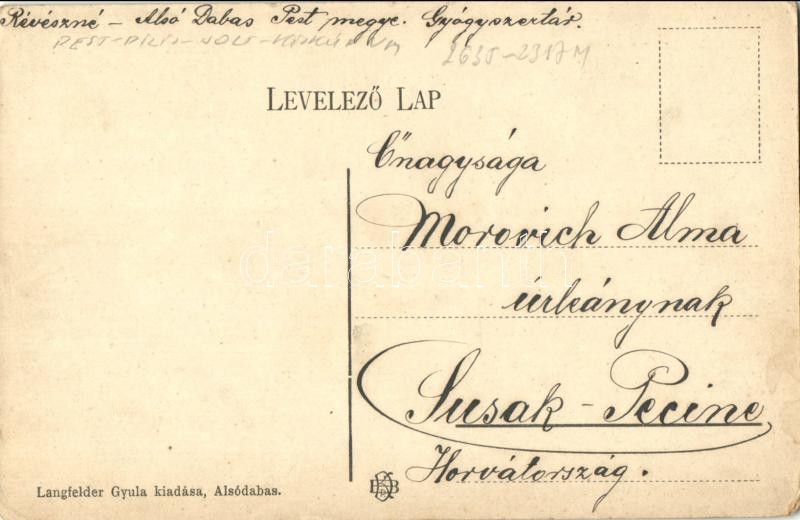 Révészné – Alsó Dabas Pest megye. Gyógyszertár.
PEST-PILIS-SOLT-KISKUN VM
LEVELEZŐ LAP
Őnagysága
Morovich Alma
úrleánynak
Susak - Pecine
Horvátország.
Langfelder Gyula kiadása, Alsódabas.
darabanth